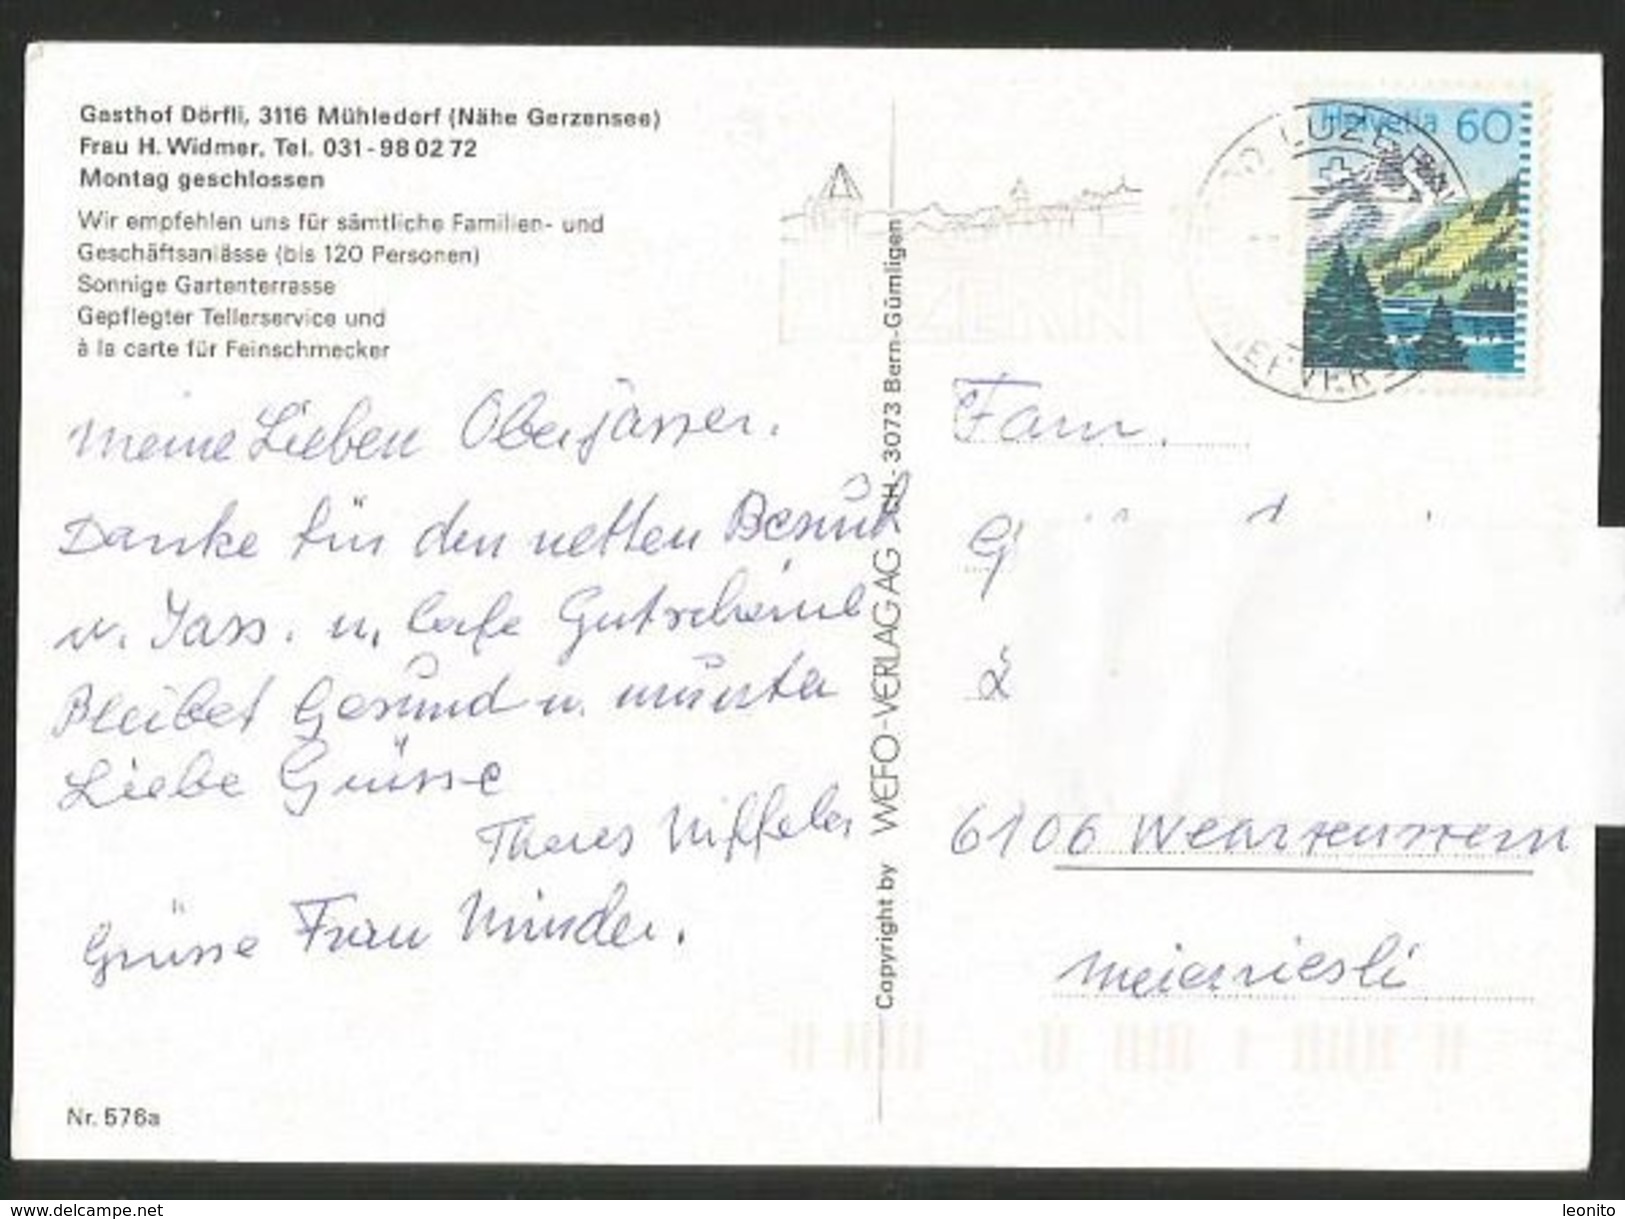 Gasthof Dörfli, 3116 Mühledorf (Nähe Gerzensee)
Frau H. Widmer, Tel. 031-98 02 72
Montag geschlossen
Wir empfehlen uns für sämtliche Familien- und
Geschäftsanlässe (bis 120 Personen)
Sonnige Gartenterrasse
Gepflegter Tellerservice und
à la carte für Feinschmecker
Meine Lieben Oberjasser.
Danke für den netten Besuch
u. Jass. u. Cafe Gutscheine
Bleibet Gesund u. munter
Liebe Grüsse
Theres Niffeler
Grüsse Frau Minder.
Nr. 576a
Copyright by WEFO-VERLAG AG CH-3073 Bern-Gümligen
LUZERN
Helvetia 60
Fam.
G
6106 Werthenstein
www.delcampe.net
leonito